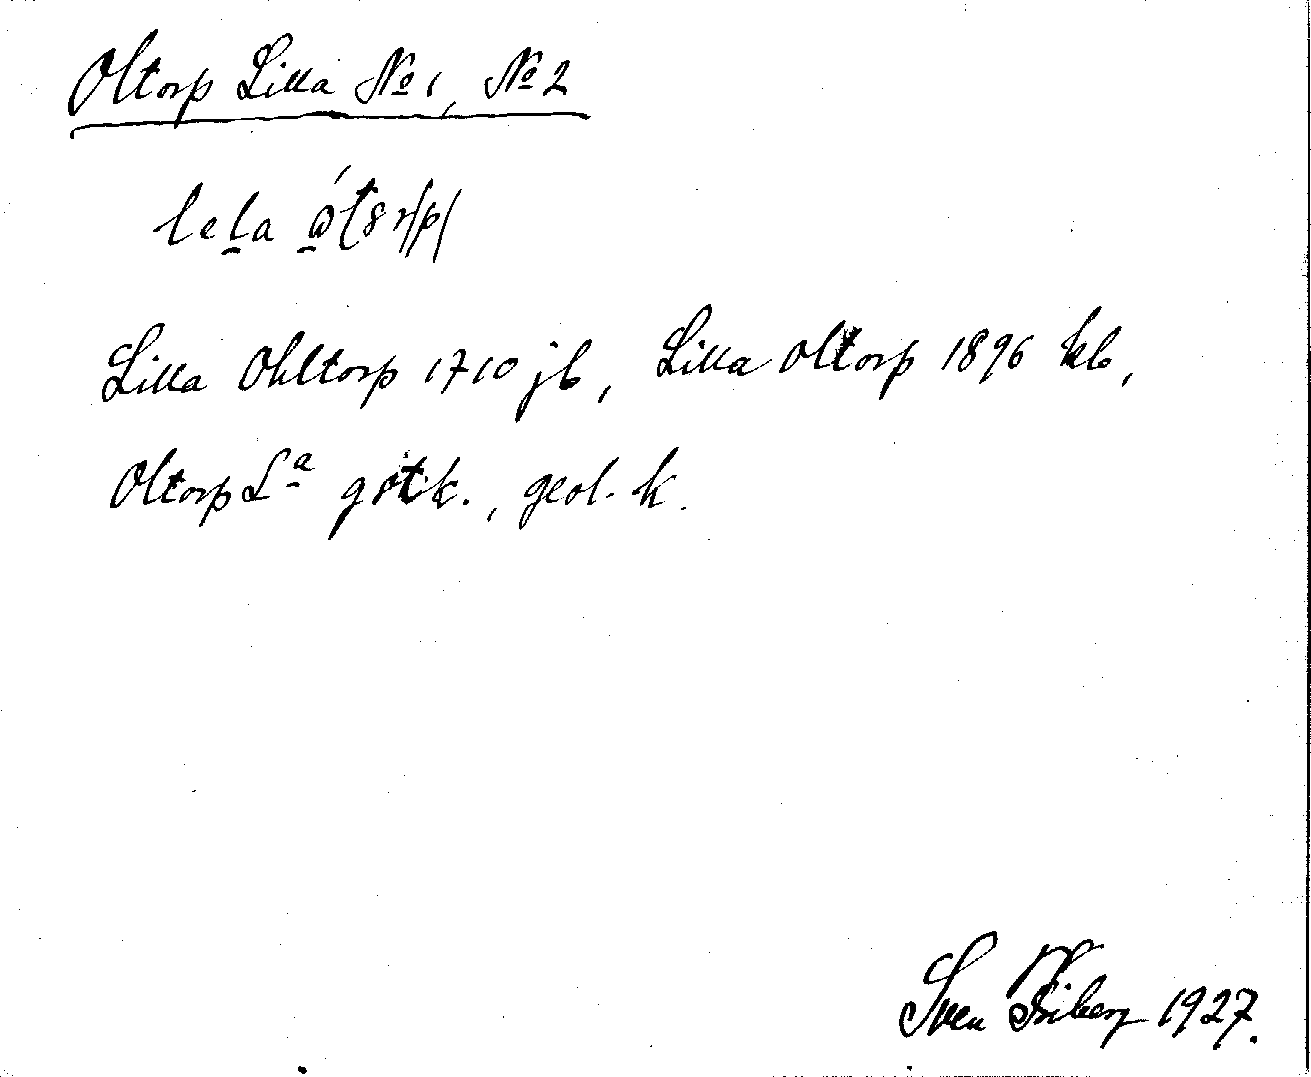 Oltorp Lilla No 1, No 2
Lilla Ohltorp 1710 jb, Lilla Oltorp 1896 kb,
Oltorp La götk., geol. k.
Sven Friberg 1927.